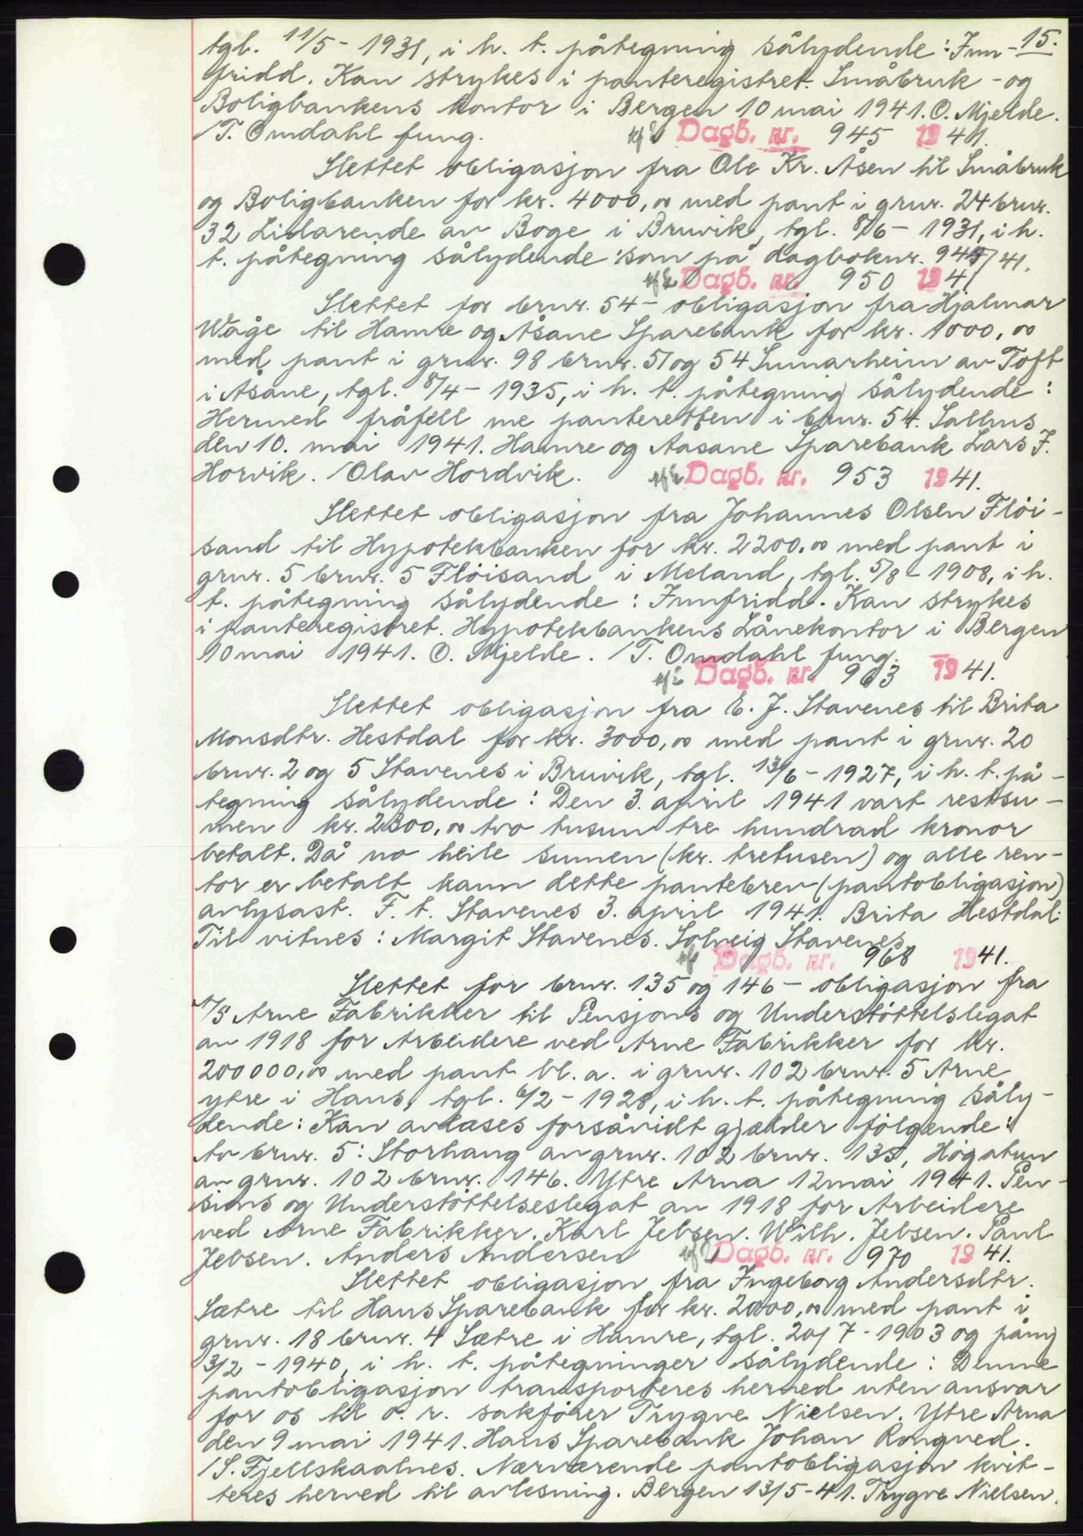 tgl. 11/5 - 1931, i h. t. påtegning sålydende: Inn- 15.
fridd. Kan strykes i panteregistret. Småbruk - og
Boligbankens kontor i Bergen 10 mai 1941. O. Mjelde.
/T. Omdahl fung. Dagb. nr. 945 1941.
Slettet obligasjon fra Ole Kr. Åsen til Småbruk
og Boligbanken for kr. 4000,00 med pant i grnr. 24 brnr.
32 Lidarende av Boge i Bruvik, tgl. 8/6 - 1931, i h.
t. påtegning sålydende: som på dagboknr. 945/41.
Dagb. nr. 950 1941
Slettet for brnr. 54 - obligasjon fra Hjalmar
Wåge til Hamre og Åsane Sparebank for kr. 1000,00
med pant i grnr. 98 brnr. 51 og 54 Sunnarheim av Toft
i Åsane, tgl. 8/4 - 1935, i h. t. påtegning sålydende:
Hermed fråfell me panteretten i brnr. 54. Salhus
den 10. mai 1941. Hamre og Aasane Sparebank Lars J.
Horvik. /Olav Hordvik. Dagb. nr. 953 1941.
Slettet obligasjon fra Johannes Olsen Fløi-
sand til Hypotekbanken for kr. 2200,00 med pant i
grnr. 5 brnr. 5 Fløisand i Meland, tgl. 5/8 - 1908, i h.
t. påtegning sålydende: Innfridd. Kan strykes
i panteregistret. Hypotekbankens Lånekontor i Bergen
10 mai 1941. O. Mjelde. /T. Omdahl fung.
Dagb. nr. 963 1941.
Slettet obligasjon fra E. J. Stavenes til Brita
Monsdtr. Hestdal for kr. 3000,00 med pant i grnr. 20
brnr. 2 og 5 Stavenes i Bruvik, tgl. 13/6 - 1927, i h. t. på-
tegning sålydende: Den 3. april 1941 vart restsu-
men kr. 2300,00 tvo tusun tre hundrad kronor
betalt. Då no heile sumen (kr. tretusen) og alle ren-
tor er betalt kann dette pantebrev (pantobligasjon)
avlysast. F. t. Stavenes 3. april 1941. Brita Hestdal
Til vitnes: Margit Stavenes. Solveig Stavenes
Dagb. nr. 968 1941.
Slettet for brnr. 135 og 146 - obligasjon fra
A/S Arne Fabrikker til Pensjons og Understøttelslegat
av 1918 for Arbeidere ved Arne Fabrikker for kr.
200000,00 med pant bl. a. i grnr. 102 brnr. 5 Arne
ytre i Haus, tgl. 6/2 - 1928, i h. t. påtegning såly-
dende: Kan avlases forsåvidt gjælder følgende:
Av brnr. 5: Storhaug av grnr. 102 brnr. 135, Høgatun
av grnr. 102 brnr. 146. Ytre Arna 12 mai 1941. Pen-
sions og Understøttelseslegat av 1918 for Arbeidere
ved Arne Fabrikker. Karl Jebsen. Wilh. Jebsen. Paul
Jebsen. Anders Andersen Dagb. nr. 970 1941.
Slettet obligasjon fra Ingeborg Andersdtr.
Sætre til Haus Sparebank for kr. 2000,00 med pant i
grnr. 18 brnr. 4 Sætre i Hamre, tgl. 20/7 - 1903 og påny
3/2 - 1940, i h. t. påtegninger sålydende: Denne
pantobligasjon transporteres herved uten ansvar
for os til o. r. sakfører Trygve Nielsen. Ytre Arna
den 9 mai 1941. Haus Sparebank Johan Rongved.
/S. Fjellskaalnes. Nærværende pantobligasjon kvit-
teres herved til avlesning. Bergen 13/5-41. Trygve Nielsen.